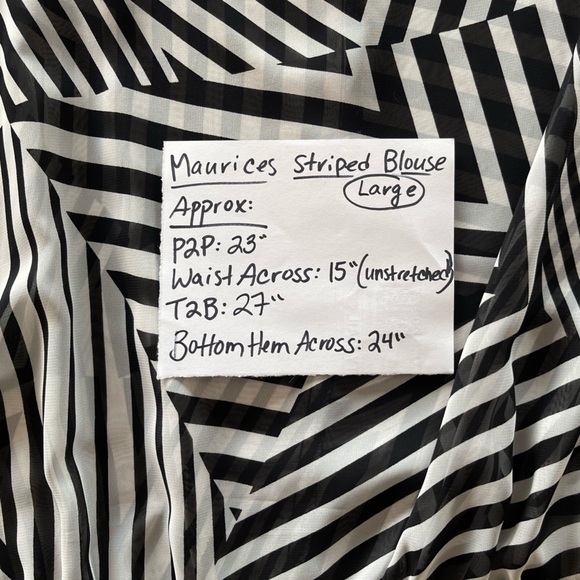 Maurices Striped Blouse
Large
Approx:
P2P: 23"
Waist Across: 15" (unstretched)
T2B: 27"
Bottom Hem Across: 24"